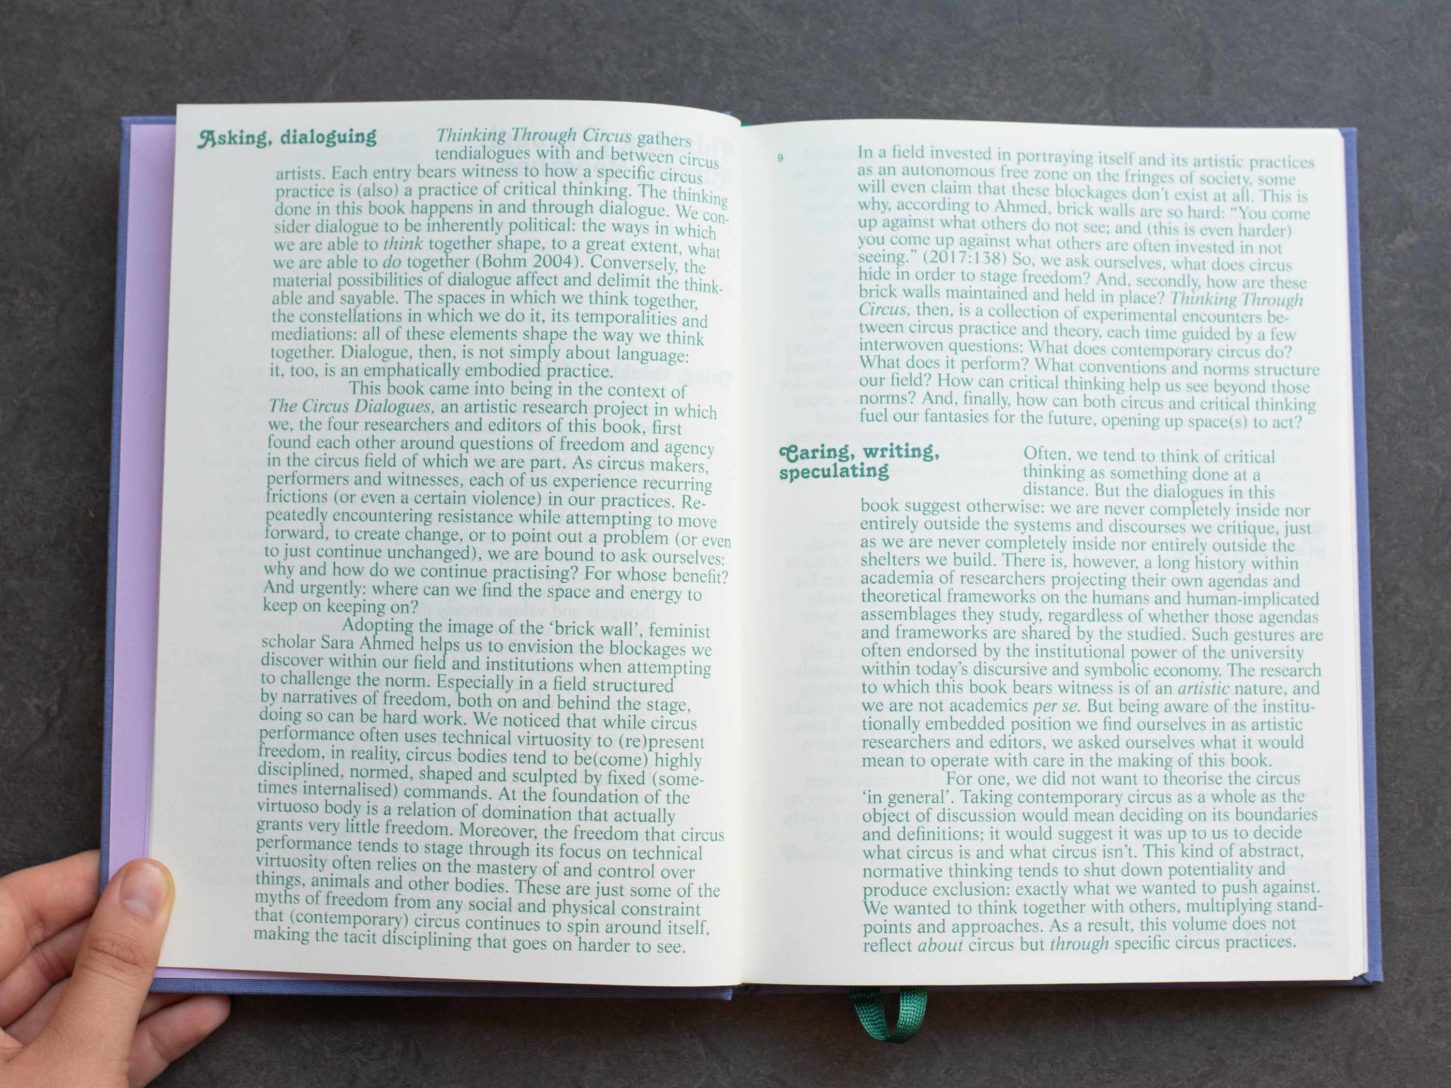 Asking, dialoguing
Thinking Through Circus gathers
tendialogues with and between circus
artists. Each entry bears witness to how a specific circus
practice is (also) a practice of critical thinking. The thinking
done in this book happens in and through dialogue. We con-
sider dialogue to be inherently political: the ways in which
we are able to think together shape, to a great extent, what
we are able to do together (Bohm 2004). Conversely, the
material possibilities of dialogue affect and delimit the think-
able and sayable. The spaces in which we think together,
the constellations in which we do it, its temporalities and
mediations: all of these elements shape the way we think
together. Dialogue, then, is not simply about language:
it, too, is an emphatically embodied practice.
This book came into being in the context of
The Circus Dialogues, an artistic research project in which
we, the four researchers and editors of this book, first
found each other around questions of freedom and agency
in the circus field of which we are part. As circus makers,
performers and witnesses, each of us experience recurring
frictions (or even a certain violence) in our practices. Re-
peatedly encountering resistance while attempting to move
forward, to create change, or to point out a problem (or even
to just continue unchanged), we are bound to ask ourselves:
why and how do we continue practising? For whose benefit?
And urgently: where can we find the space and energy to
keep on keeping on?
Adopting the image of the ‘brick wall’, feminist
scholar Sara Ahmed helps us to envision the blockages we
discover within our field and institutions when attempting
to challenge the norm. Especially in a field structured
by narratives of freedom, both on and behind the stage,
doing so can be hard work. We noticed that while circus
performance often uses technical virtuosity to (re)present
freedom, in reality, circus bodies tend to be(come) highly
disciplined, normed, shaped and sculpted by fixed (some-
times internalised) commands. At the foundation of the
virtuoso body is a relation of domination that actually
grants very little freedom. Moreover, the freedom that circus
performance tends to stage through its focus on technical
virtuosity often relies on the mastery of and control over
things, animals and other bodies. These are just some of the
myths of freedom from any social and physical constraint
that (contemporary) circus continues to spin around itself,
making the tacit disciplining that goes on harder to see.
9
In a field invested in portraying itself and its artistic practices
as an autonomous free zone on the fringes of society, some
will even claim that these blockages don’t exist at all. This is
why, according to Ahmed, brick walls are so hard: “You come
up against what others do not see; and (this is even harder)
you come up against what others are often invested in not
seeing.” (2017:138) So, we ask ourselves, what does circus
hide in order to stage freedom? And, secondly, how are these
brick walls maintained and held in place? Thinking Through
Circus, then, is a collection of experimental encounters be-
tween circus practice and theory, each time guided by a few
interwoven questions: What does contemporary circus do?
What does it perform? What conventions and norms structure
our field? How can critical thinking help us see beyond those
norms? And, finally, how can both circus and critical thinking
fuel our fantasies for the future, opening up space(s) to act?
Caring, writing,
speculating
Often, we tend to think of critical
thinking as something done at a
distance. But the dialogues in this
book suggest otherwise: we are never completely inside nor
entirely outside the systems and discourses we critique, just
as we are never completely inside nor entirely outside the
shelters we build. There is, however, a long history within
academia of researchers projecting their own agendas and
theoretical frameworks on the humans and human-implicated
assemblages they study, regardless of whether those agendas
and frameworks are shared by the studied. Such gestures are
often endorsed by the institutional power of the university
within today’s discursive and symbolic economy. The research
to which this book bears witness is of an artistic nature, and
we are not academics per se. But being aware of the institu-
tionally embedded position we find ourselves in as artistic
researchers and editors, we asked ourselves what it would
mean to operate with care in the making of this book.
For one, we did not want to theorise the circus
‘in general’. Taking contemporary circus as a whole as the
object of discussion would mean deciding on its boundaries
and definitions; it would suggest it was up to us to decide
what circus is and what circus isn’t. This kind of abstract,
normative thinking tends to shut down potentiality and
produce exclusion: exactly what we wanted to push against.
We wanted to think together with others, multiplying stand-
points and approaches. As a result, this volume does not
reflect about circus but through specific circus practices.